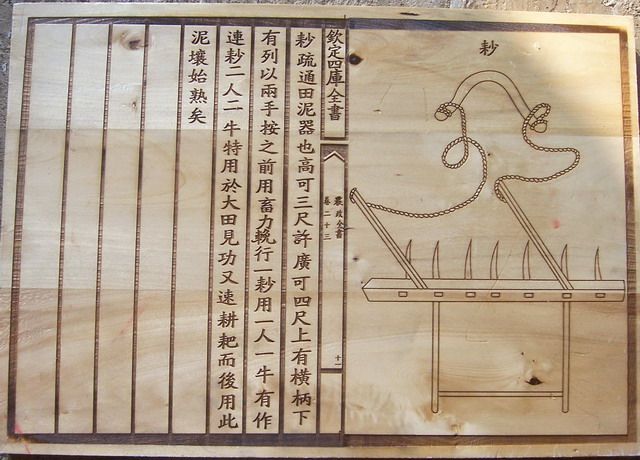 耖
欽定四庫全書
農政全書
卷二十三
十一
耖疏通田泥器也高可三尺許廣可四尺上有橫柄下
有列以兩手按之前用畜力輓行一耖用一人一牛有作
連耖二人二牛特用於大田見功又速耕耙而後用此
泥壤始熟矣